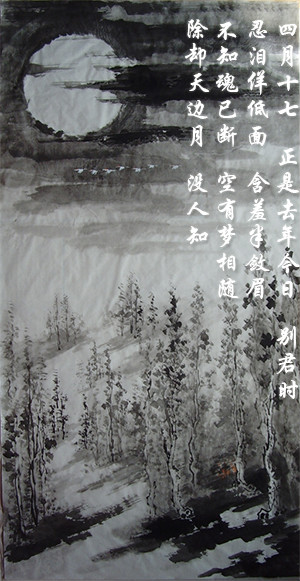 四月十七 正是去年今日 别君时
忍泪佯低面 含羞半敛眉
不知魂已断 空有梦相随
除却天边月 没人知